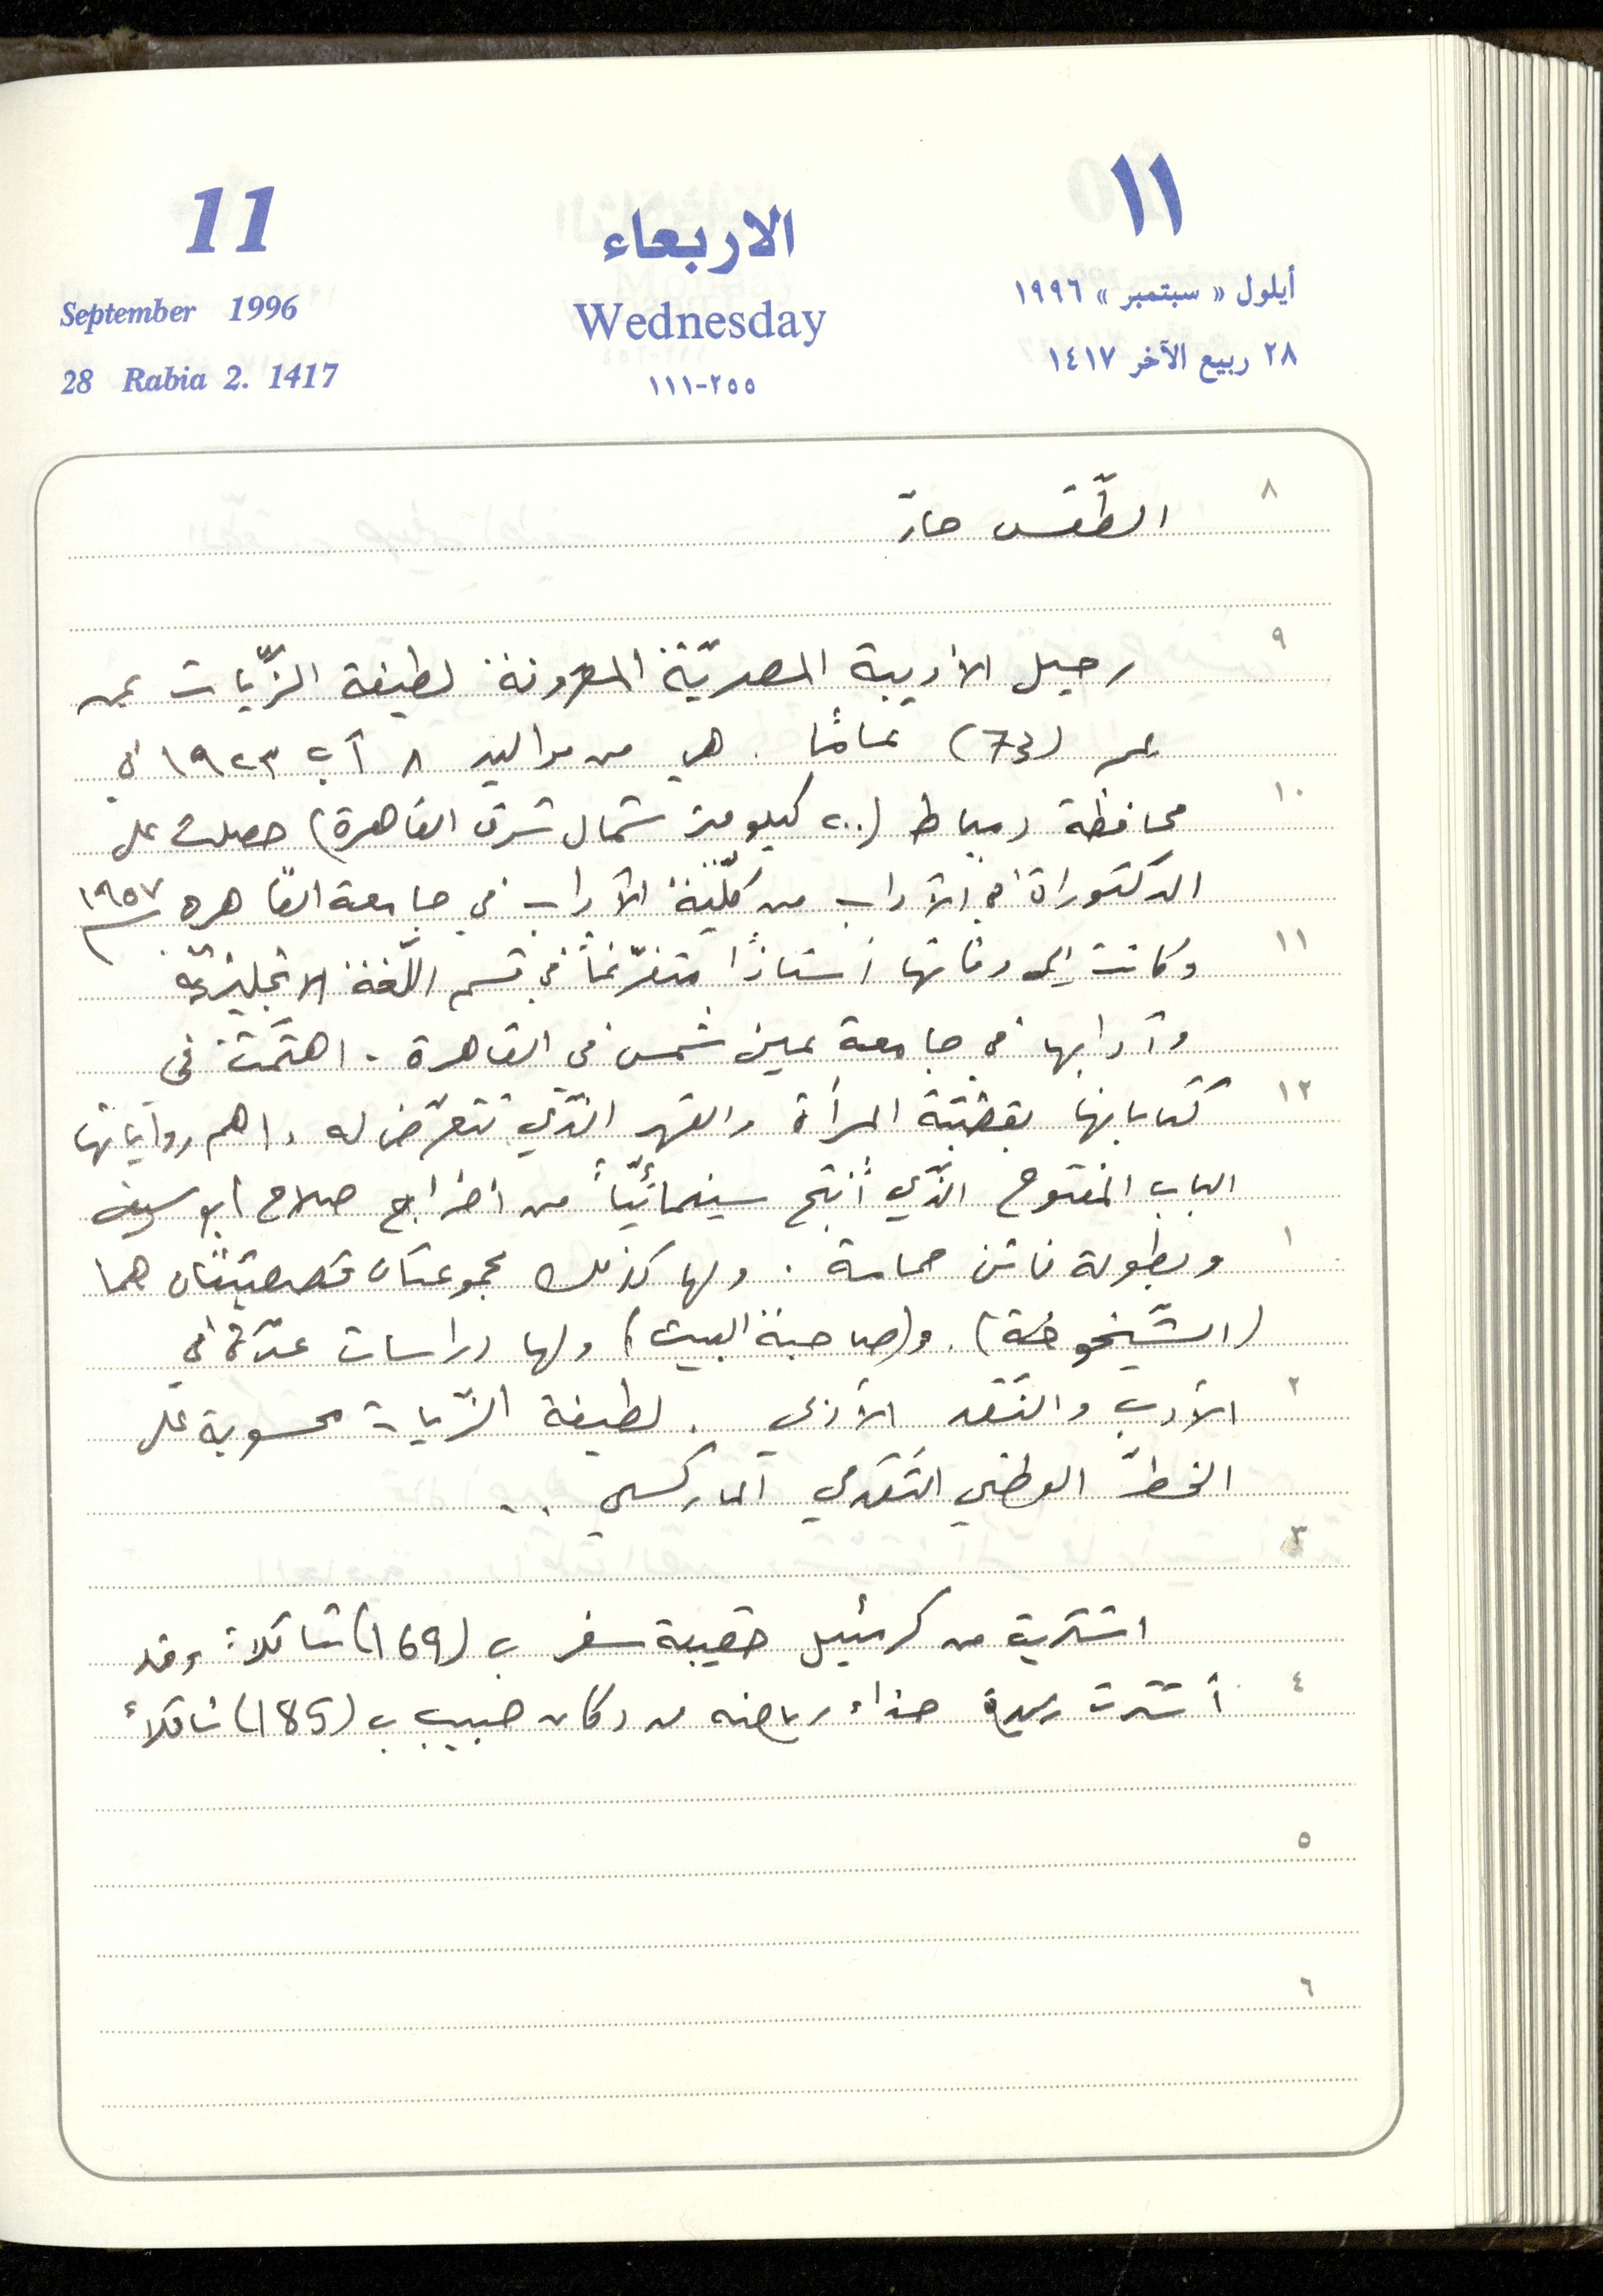 11
الاربعاء
١١
September 1996
Wednesday
أيلول « سبتمبر » ١٩٩٦
28 Rabia 2. 1417
٢٥٥-١١١
٢٨ ربيع الآخر ١٤١٧
٨
الطّقس حارّ
٩
رحيل الأديبة المصريّة المعروفة لطيفة الزّيات عن
عمر (73) عامًا . هي من مواليد ٨ آب ١٩٢٣ في
١٠
محافظة دمياط (٢٠٠ كيلومتر شمال شرق القاهرة) حصلت على
الدكتوراة في الآداب من كلّيّة الآداب في جامعة القاهره ١٩٥٧
١١
وكانت إلى وفاتها أستاذًا متفرّغاً في قسم اللّغة الانجليزيّة
وآدابها في جامعة عين شمس في القاهرة . اهتمّت في
١٢
كتاباتها بقضيّة المرأة والقهر الّذي تتعرّض له . اهم رواياتها
الباب المفتوح الّذي أُنتج سينمائيّاً من اخراج صلاح ابو سيف
١
وبطولة فاتن حمامة . ولها كذلك مجموعتان قصصيّتان هما
(الشّيخوخة) . و(صاحبة البيت) ولها دراسات عدّة في
٢
الأدب والنّقد الأدبي . لطيفة الزّيات محسوبة على
الخطّ الوطني التّقدمي الماركسي . .
٣
اشتريت من كرمئيل حقيبة سفر ب (169) شاقلاً وقد
٤
أشترت حذاء رياضه من دكان حبيب ب (185) شاقلاً
٥
٦